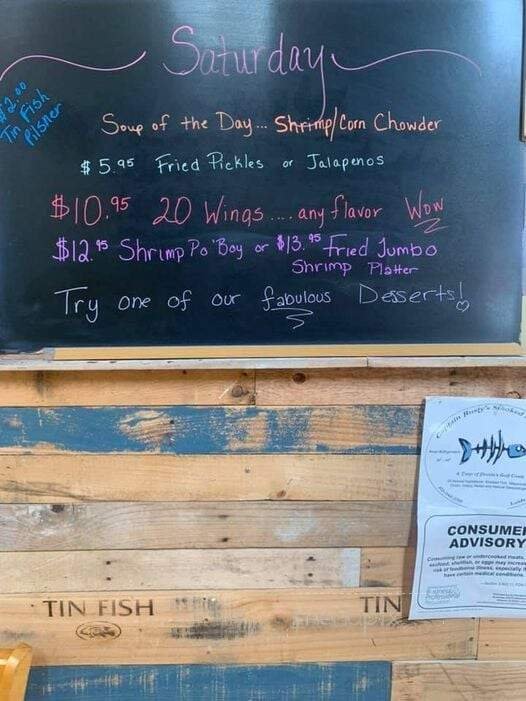 Saturday
$2.00
Tin Fish
Pilsner
Soup of the Day... Shrimp/Corn Chowder
$5.95 Fried Pickles or Jalapenos
$10.95 20 Wings .... any flavor Wow
$12.95 Shrimp Po'Boy or $13.95 Fried Jumbo
Shrimp Platter
Try one of our fabulous Desserts!
Captain Rusty's Smoked
CONSUMER
ADVISORY
Consuming raw or undercooked meats,
seafood, shellfish, or eggs may increase
risk of foodborne illness, especially if
have certain medical conditions.
TIN FISH
TIN